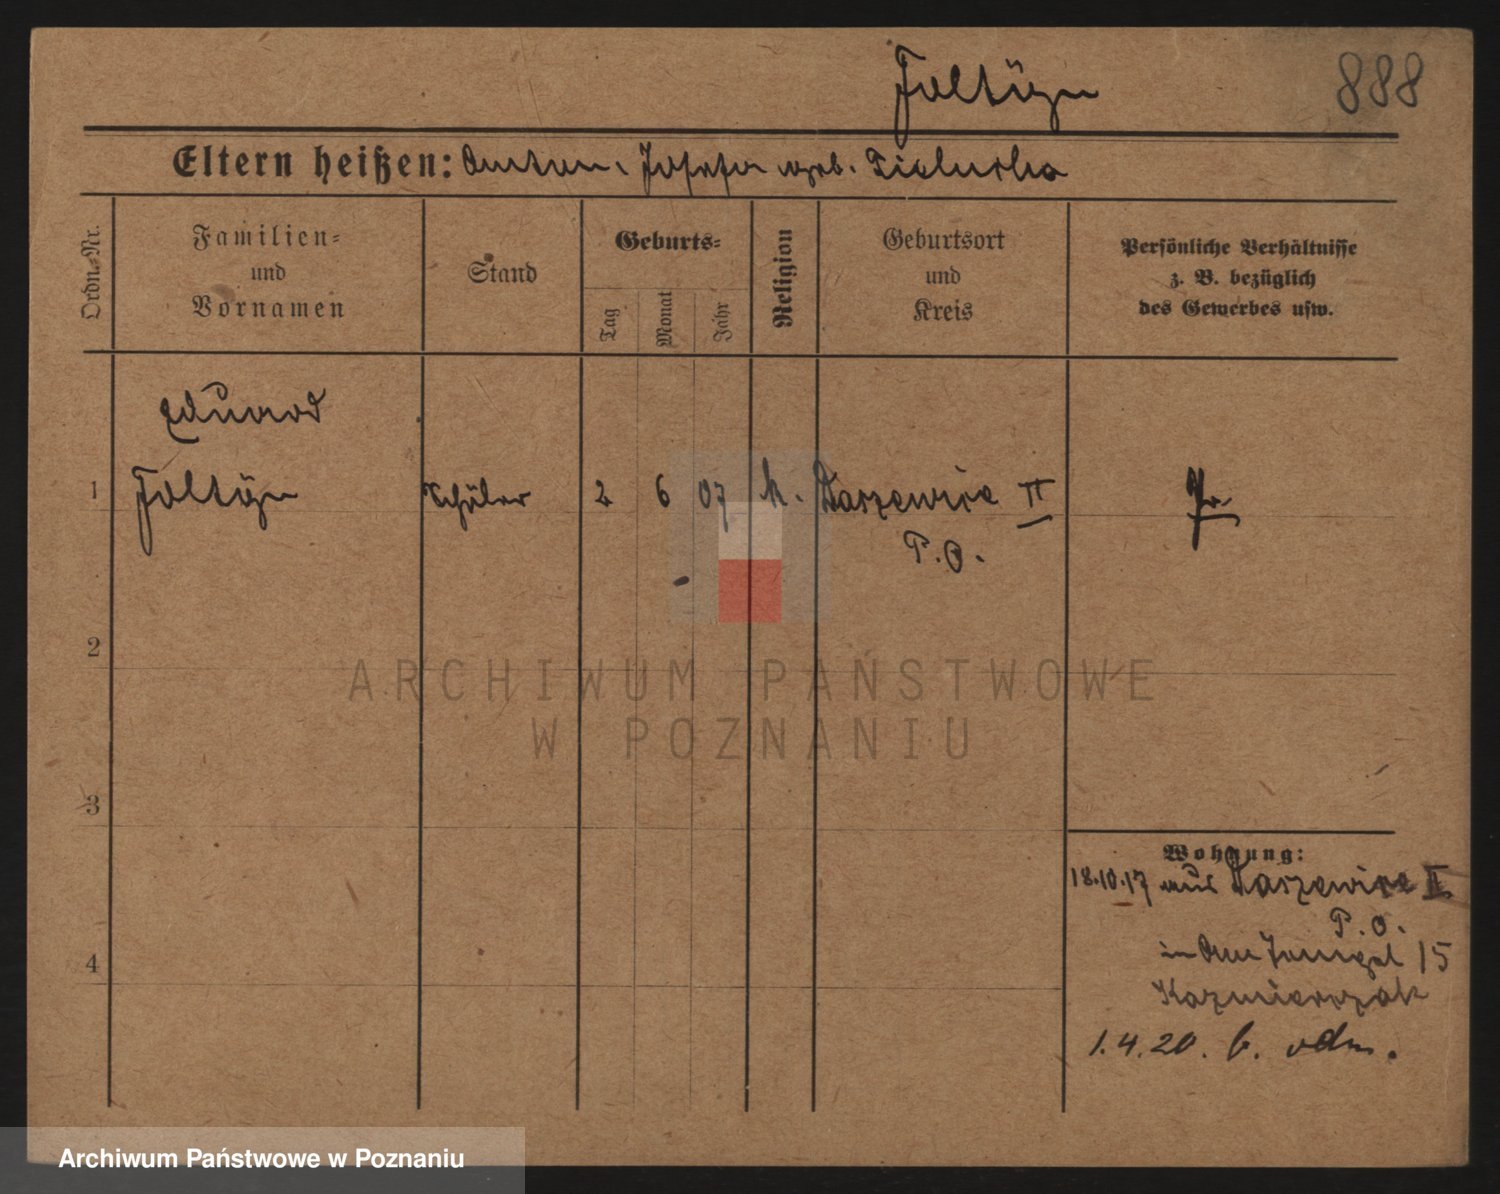 Foltÿn
888
Eltern heißen: Anton, Josefa geb.
Ordn.-Nr.
Familien-
und
Vornamen
Stand
Geburts-
Tag
Monat
Jahr
Religion
Geburtsort
und
Kreis
Persönliche Verhältnisse
z. B. bezüglich
des Gewerbes usw.
Eduard
1 Foltÿn Schüler 2 6 07 k. Daszewice II
P. O.
2
3
4
Wohnung:
18.10.17 aus Daszewice II
P. O.
15
Kazmierczak
1.4.20.
ARCHIWUM PAŃSTWOWE
W POZNANIU
Archiwum Państwowe w Poznaniu